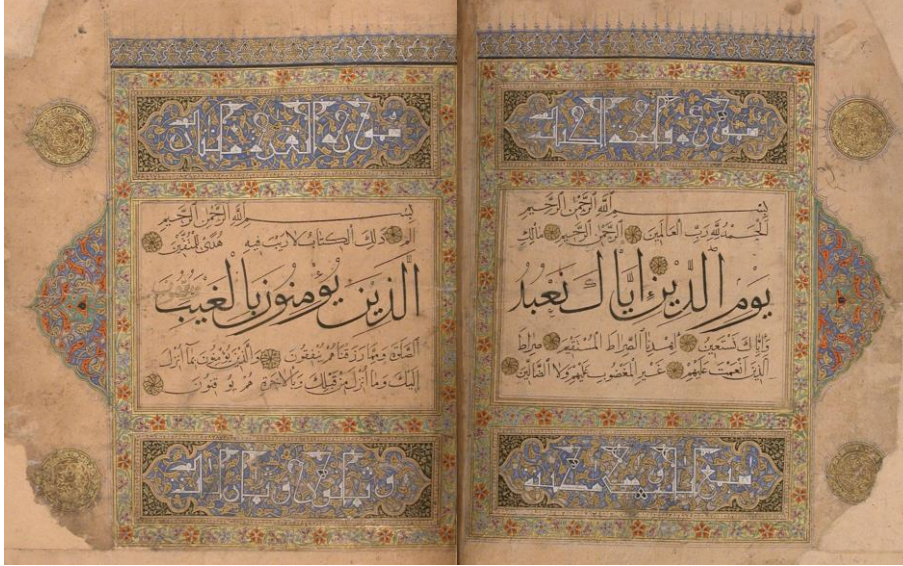 سورة فاتحة الكتاب
بسم الله الرحمن الرحيم
الحمد لله رب العالمين الرحمن الرحيم مالك
يوم الدين اياك نعبد
واياك نستعين اهدنا الصراط المستقيم صراط
الذين انعمت عليهم غير المغضوب عليهم ولا الضالين
سورة البقرة مائتان
بسم الله الرحمن الرحيم
الم ذلك الكتاب لا ريب فيه هدى للمتقين
الذين يؤمنون بالغيب
الصلوة ومما رزقناهم ينفقون والذين يؤمنون بما انزل
اليك وما انزل من قبلك وبالاخرة هم يوقنون
وثمانون وثمان